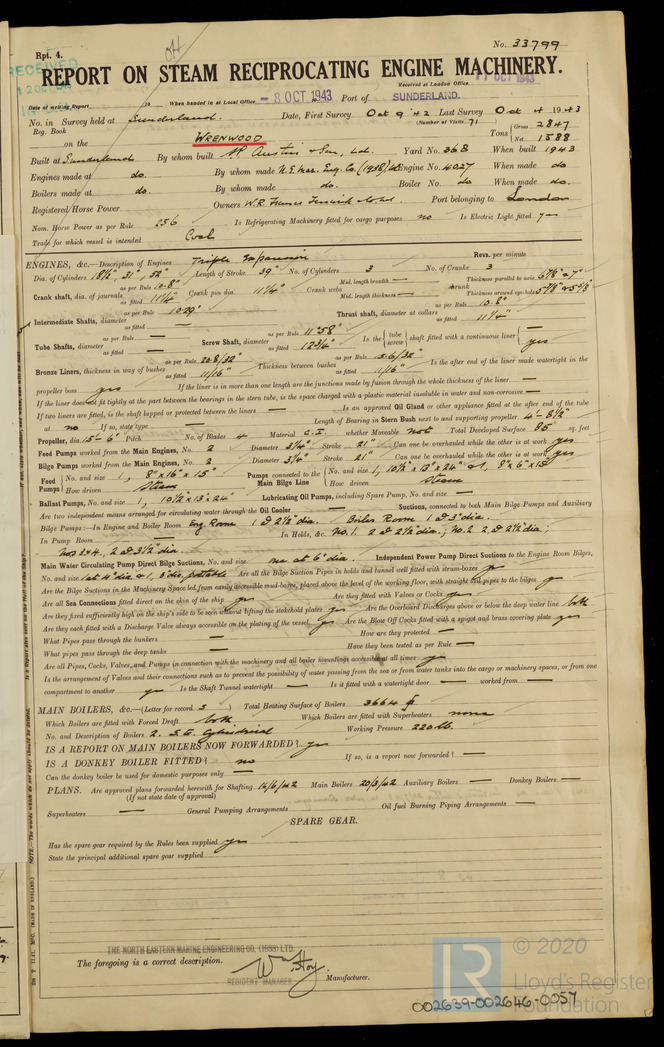 Rpt. 4.
No. 33799
REPORT ON STEAM RECIPROCATING ENGINE MACHINERY.
Received at London Office
Date of writing Report 19 When handed in at Local Office -8 OCT 1943 Port of SUNDERLAND.
No. in Survey held at Sunderland. Date, First Survey Oct 9 42 Last Survey Oct 4 1943
Reg. Book (Number of Visits 71)
on the WRENWOOD Tons { Gross 2847 Net 1588
Built at Sunderland By whom built S.P. Austin & Son, Ltd. Yard No. 368 When built 1943
Engines made at do. By whom made N.E. Mar. Eng. Co. (1938) Ltd Engine No. 4027 When made do
Boilers made at do. By whom made do. Boiler No. do When made do.
Registered Horse Power Owners W.R. France Fenwick & Co Ltd. Port belonging to London
Nom. Horse Power as per Rule 256 Is Refrigerating Machinery fitted for cargo purposes no Is Electric Light fitted yes
Trade for which vessel is intended Coal
ENGINES, &c.—Description of Engines Triple Expansion Revs. per minute
Dia. of Cylinders 18½" 31" 52" Length of Stroke 39" No. of Cylinders 3 No. of Cranks 3
Crank shaft, dia. of journals as per Rule 10.8" as fitted 11¼" Crank pin dia. 11¼" Crank webs Mid. length breadth — Mid. length thickness — shrunk Thickness parallel to axis 6⅞" & 7" Thickness around eye-hole
Intermediate Shafts, diameter as per Rule 10.29" as fitted — Thrust shaft, diameter at collars as per Rule 10.8" as fitted 11¼"
Tube Shafts, diameter as per Rule — as fitted — Screw Shaft, diameter as per Rule 11.58" as fitted 12¾" Is the { tube screw } shaft fitted with a continuous liner { — yes
Bronze Liners, thickness in way of bushes as per Rule 20.8/32" as fitted 11/16" Thickness between bushes as per Rule 15.6/32" as fitted 11/16" Is the after end of the liner made watertight in the
propeller boss yes If the liner is in more than one length are the junctions made by fusion through the whole thickness of the liner —
If the liner does not fit tightly at the part between the bearings in the stern tube, is the space charged with a plastic material insoluble in water and non-corrosive —
If two liners are fitted, is the shaft lapped or protected between the liners — Is an approved Oil Gland or other appliance fitted at the after end of the tube
at no If so, state type — Length of Bearing in Stern Bush next to and supporting propeller 4'-8½"
Propeller, dia. 15'-6" Pitch No. of Blades 4 Material C.I. whether Moveable not Total Developed Surface 85 sq. feet
Feed Pumps worked from the Main Engines, No. 2 Diameter 3¼" Stroke 21" Can one be overhauled while the other is at work yes
Bilge Pumps worked from the Main Engines, No. 2 Diameter 3¼" Stroke 21" Can one be overhauled while the other is at work yes
Feed Pumps { No. and size 1, 8" x 16" x 15" How driven Steam Pumps connected to the Main Bilge Line { No. and size 1, 10½" x 13" x 24" & 1, 8" x 6" x 15" How driven Steam
Ballast Pumps, No. and size 1, 10½" x 13" x 24" Lubricating Oil Pumps, including Spare Pump, No. and size —
Are two independent means arranged for circulating water through the Oil Cooler — Suctions, connected to both Main Bilge Pumps and Auxiliary
Bilge Pumps:—In Engine and Boiler Room Eng. Room 1 @ 2½" dia. Boiler Room 1 @ 3" dia.
In Pump Room — In Holds, &c. No. 1. 2 @ 2½" dia.; No. 2 2 @ 2½" dia;
Nos 3 & 4, 2 @ 3½" dia.
Main Water Circulating Pump Direct Bilge Suctions, No. and size one at 6" dia. Independent Power Pump Direct Suctions to the Engine Room Bilges,
No. and size 1 at 4" dia & 1, 3" dia, portable Are all the Bilge Suction Pipes in holds and tunnel well fitted with strum-boxes yes
Are the Bilge Suctions in the Machinery Space led from easily accessible mud boxes, placed above the level of the working floor, with straight tail pipes to the bilges yes
Are all Sea Connections fitted direct on the skin of the ship yes Are they fitted with Valves or Cocks yes
Are they fixed sufficiently high on the ship's side to be seen without lifting the stokehold plates yes Are the Overboard Discharges above or below the deep water line both
Are they each fitted with a Discharge Valve always accessible on the plating of the vessel yes Are the Blow Off Cocks fitted with a spigot and brass covering plate yes
What Pipes pass through the bunkers — How are they protected —
What pipes pass through the deep tanks — Have they been tested as per Rule —
Are all Pipes, Cocks, Valves, and Pumps in connection with the machinery and all boiler mountings accessible at all times yes
Is the arrangement of Valves and their connections such as to prevent the possibility of water passing from the sea or from water tanks into the cargo or machinery spaces, or from one
compartment to another yes Is the Shaft Tunnel watertight — Is it fitted with a watertight door — worked from —
MAIN BOILERS, &c.—(Letter for record S) Total Heating Surface of Boilers 3664
Which Boilers are fitted with Forced Draft both Which Boilers are fitted with Superheaters none
No. and Description of Boilers 2. S.E. Cylindrical Working Pressure 220 lb.
IS A REPORT ON MAIN BOILERS NOW FORWARDED? yes
IS A DONKEY BOILER FITTED? no If so, is a report now forwarded? —
Can the donkey boiler be used for domestic purposes only —
PLANS. Are approved plans forwarded herewith for Shafting 16/6/42 Main Boilers 20/3/42 Auxiliary Boilers — Donkey Boilers —
(If not state date of approval)
Superheaters — General Pumping Arrangements — Oil fuel Burning Piping Arrangements —
SPARE GEAR.
Has the spare gear required by the Rules been supplied yes
State the principal additional spare gear supplied
THE NORTH EASTERN MARINE ENGINEERING CO. (1938) LTD.
The foregoing is a correct description.
RESIDENT MANAGER Manufacturer.
LR © 2020
Lloyd's Register
Foundation
002639-002646-0057